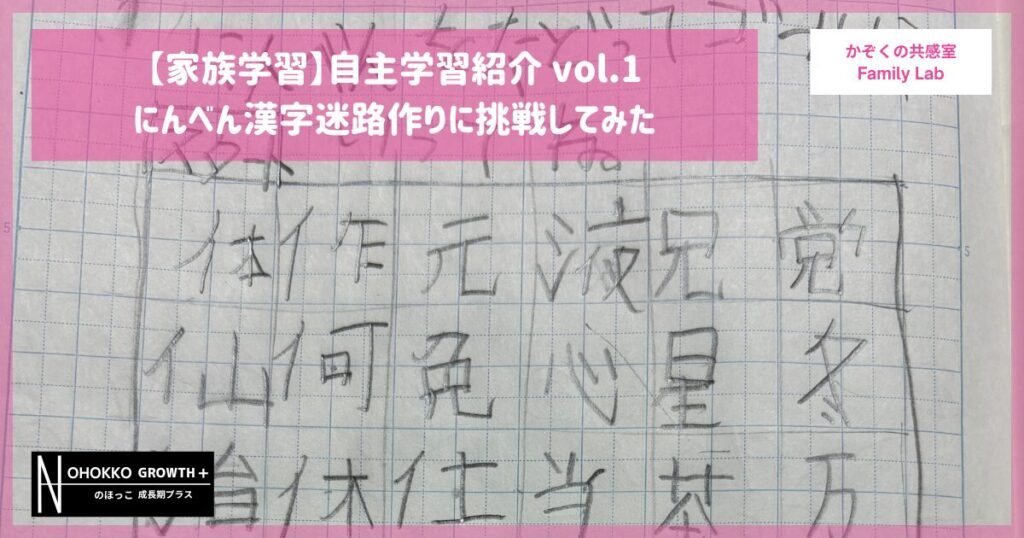 をたどってゴール
【家族学習】自主学習紹介 vol.1
にんべん漢字迷路作りに挑戦してみた
かぞくの共感室
Family Lab
体 作 元 液 兄 覚
仙 何 色 心 星 冬
休 仕 当 基 万
NOHOKKO GROWTH+
のほっこ 成長期プラス
5
5